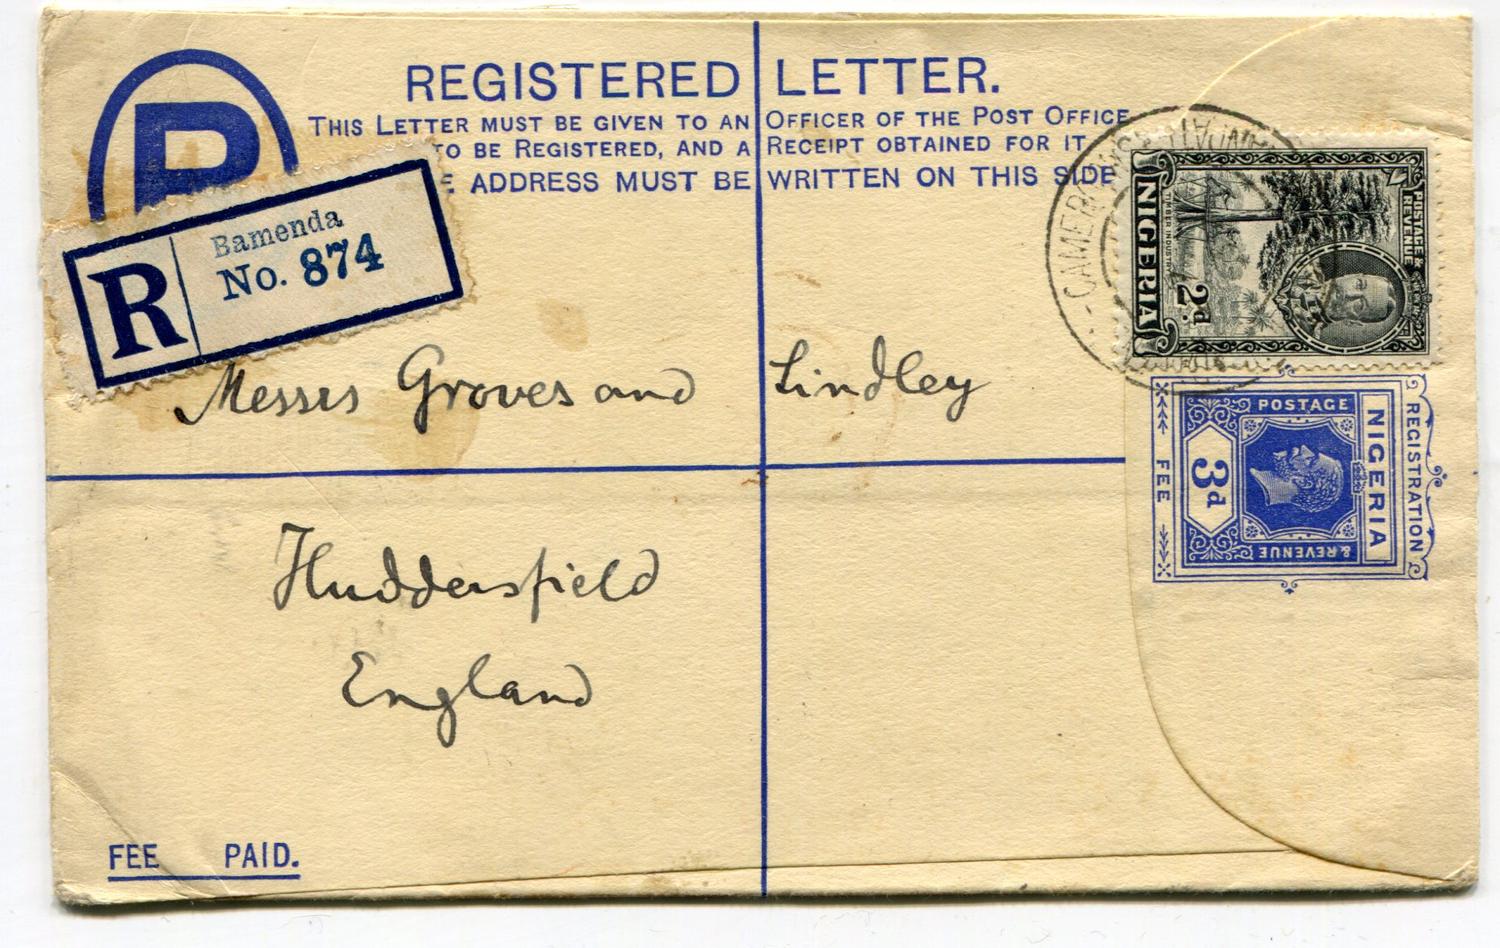 REGISTERED LETTER.
THIS LETTER MUST BE GIVEN TO AN OFFICER OF THE POST OFFICE
TO BE REGISTERED, AND A RECEIPT OBTAINED FOR IT
ADDRESS MUST BE WRITTEN ON THIS SIDE
R
Bamenda
No. 874
Messrs Groves and Lindley
Huddersfield
England
FEE PAID.
CAMEROONS
POSTAGE &
REVENUE
NIGERIA
TIMBER INDUSTRY
2d.
REGISTRATION
NIGERIA
POSTAGE
& REVENUE
3d
FEE